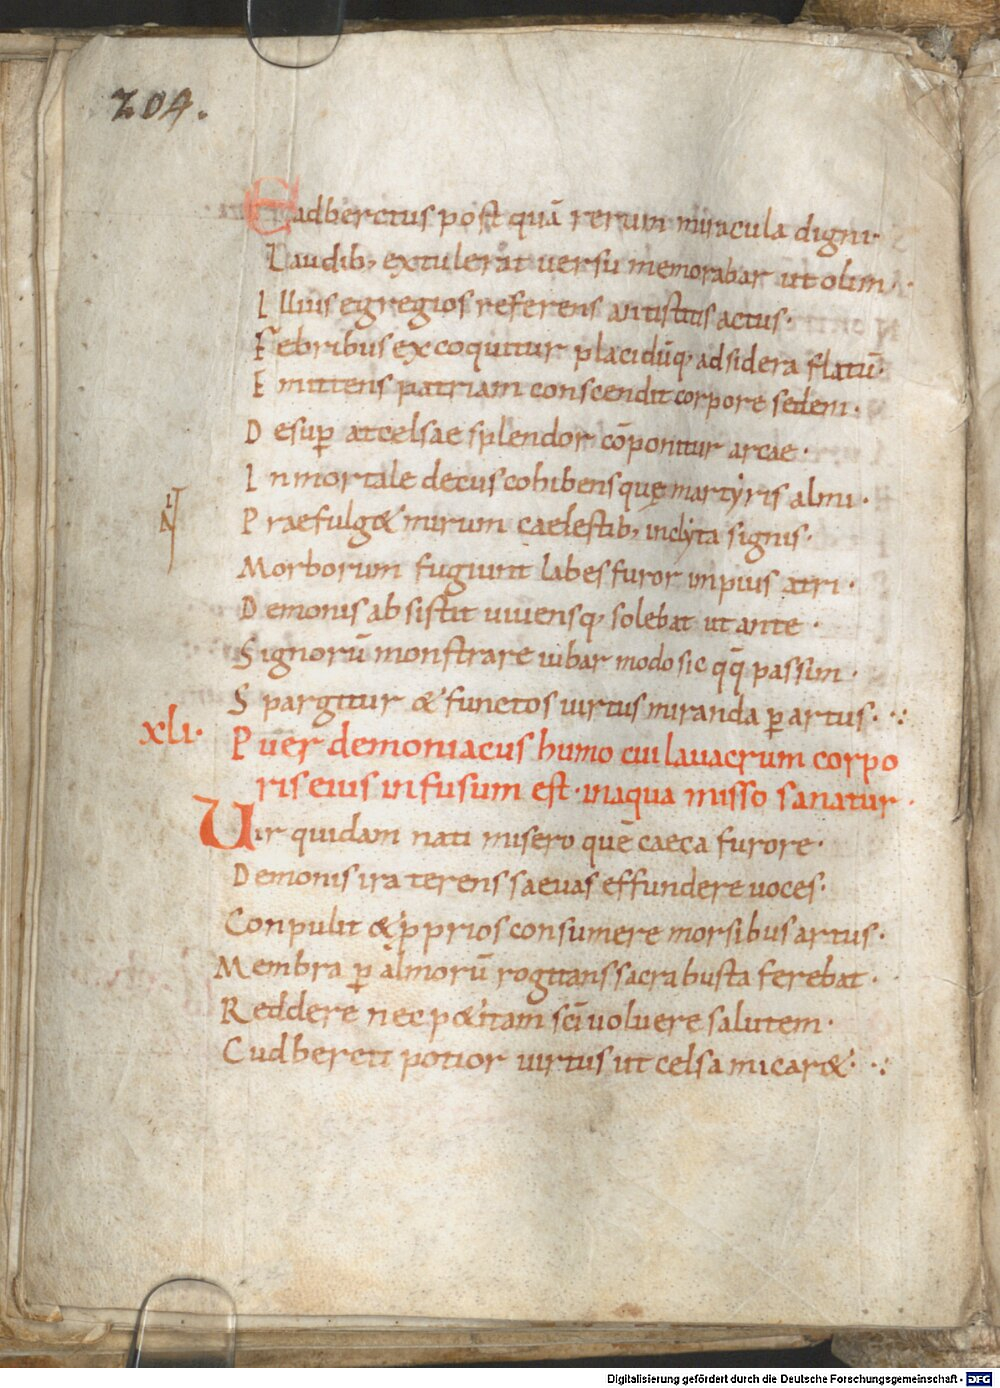 204.
Eadberctus post quā rerum miracula digni·
Laudib; extulerat uersu memorabar ut olim·
Illius egregios referens antistitis actus·
Febribus excoquitur placidūq; ad sidera flatū·
Emittens patriam conscendit corpore sedem·
Desup̄ at celsae splendor cōponitur arcae·
Inmortale decus cohibens quę martyris almi·
Praefulg& mirum caelestib; inclyta signis·
Morborum fugiunt labes furor impius atri·
Demonis absistit uiuensq; solebat ut ante·
Signorū monstrare iubar modo sic qq̄ passim·
Spargitur & functos uirtus miranda p̄ artus·
xli· Puer demoniacus humo cui lauacrum corpo
ris eius infusum est· in aqua misso sanatur·
Uir quidam nati misero quē caeca furore·
Demonis ira terens saeuas effundere uoces·
Conpulit & p̱prios consumere morsibus artus·
Membra p̄ almorū rogitans sacra busta ferebat·
Reddere nec p&itam sc̄i uoluere salutem·
Cudbercti potior uirtus ut celsa micar&·
Digitalisierung gefördert durch die Deutsche Forschungsgemeinschaft - DFG